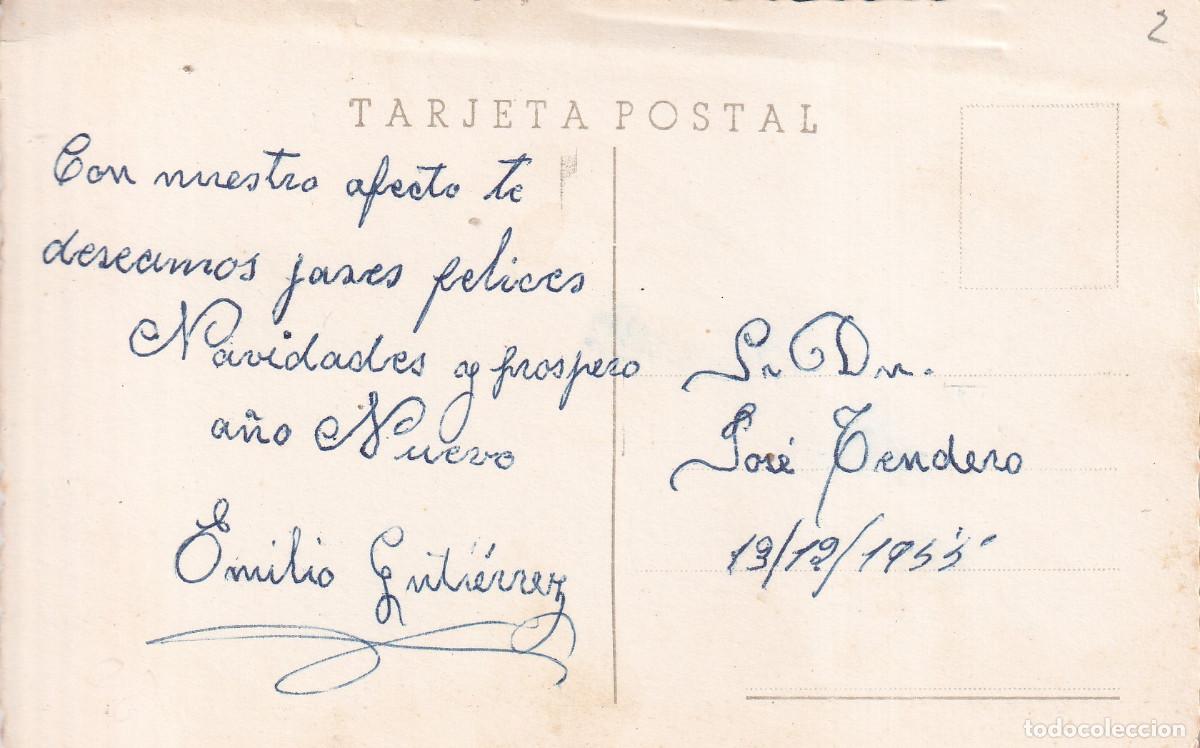 2
TARJETA POSTAL
Con nuestro afecto te
deseamos pases felices
Navidades y prospero
año Nuevo
Emilio Gutiérrez
Sr. Dn.
José Tendero
19/12/1955
todocoleccion